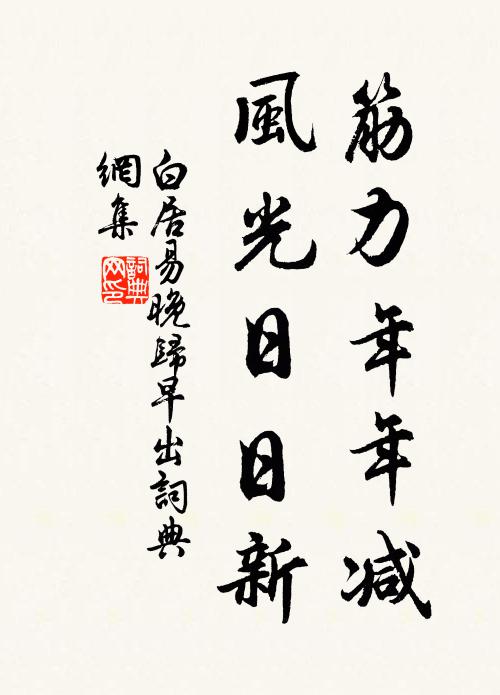 筋力年年减
風光日日新
白居易晚歸早出詞典
網集
詞典
网印